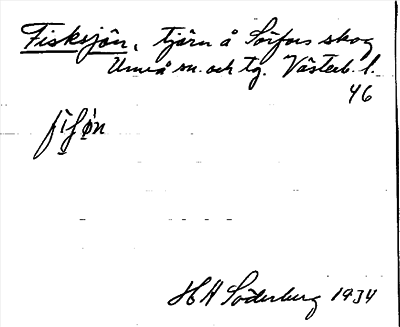 Fisksjön, tjärn å Sörfors skog
Umeå sn. och tg. Västerb. l.
46
HA Söderberg 1934